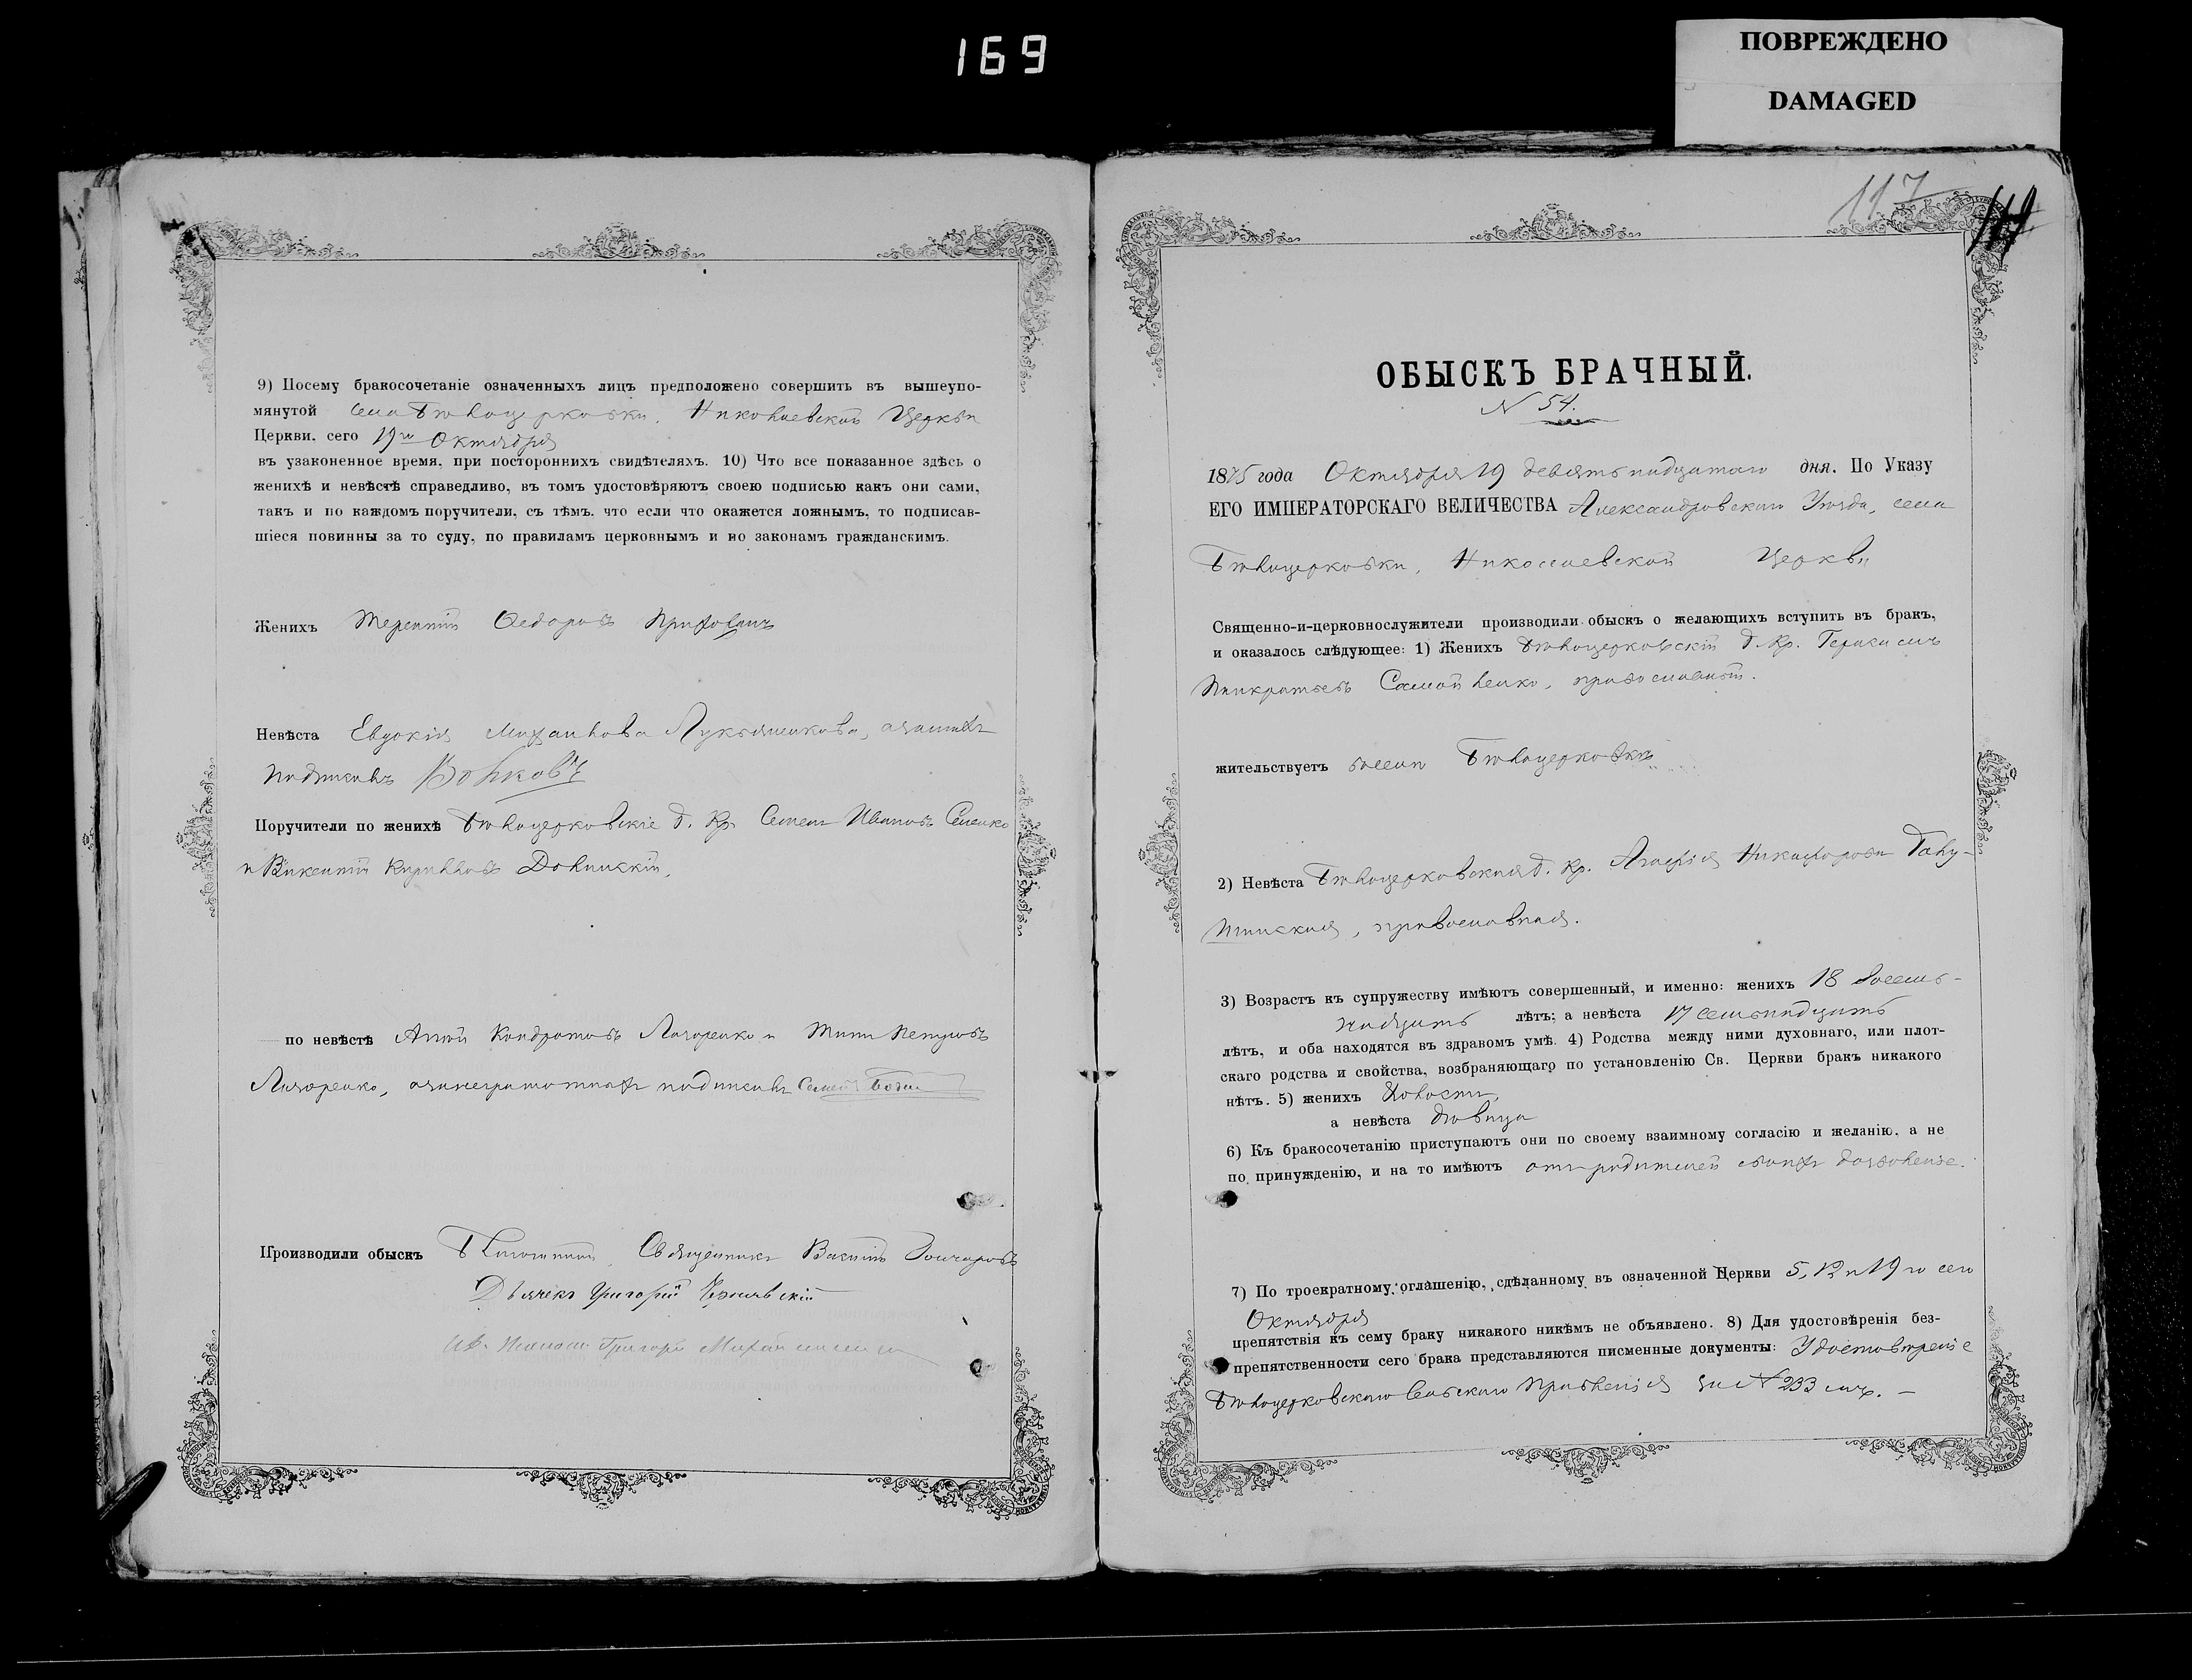 169
ПОВРЕЖДЕНО
DAMAGED
9) Посему бракосочетаніе означенныхъ лицъ предположено совершить въ вышеупо-
мянутой села Бѣлоцерковки, Николаевской Церкви
Церкви. сего 19го Октября
въ узаконенное время, при постороннихъ свидѣтеляхъ. 10) Что все показанное здѣсь о
женихѣ и невѣстѣ справедливо, въ томъ удостовѣряютъ своею подписью какъ они сами,
такъ и по каждомъ поручители, съ тѣмъ, что если что окажется ложнымъ, то подписав-
шіеся повинны за то суду, по правиламъ церковнымъ и по законамъ гражданскимъ.
Женихъ Терентій Ѳедоровъ
Невѣста Евдокія Михайлова Лукьяненкова, а за нихъ
Волковъ
Поручители по женихѣ Бѣлоцерковскіе д. Кр. Семенъ Ивановъ Сененко
и Викентій Кирилловъ Долинскій,
по невѣстѣ Кондратовъ Лазоренко и Петровъ
Лазоренко, а за неграмотныхъ подписалъ
Производили обыскъ Благочинный, Священникъ Василій Гончаровъ
Дьячекъ Григорій
Григорій
117
ОБЫСКЪ БРАЧНЫЙ.
N 54.
1875 года Октября 19 девятьнадцатаго дня. По Указу
ЕГО ИМПЕРАТОРСКАГО ВЕЛИЧЕСТВА Александровскаго Уѣзда, села
Бѣлоцерковки, Николаевской Церкви
Священно-и-церковнослужители производили обыскъ о желающихъ вступить въ бракъ,
и оказалось слѣдующее: 1) Женихъ Бѣлоцерковскій д. Кр. Герасимъ
Панкратьевъ Самойленко, православный.
жительствуетъ въ селѣ Бѣлоцерковкѣ
2) Невѣста Бѣлоцерковская д. Кр. Агафія Никифорова Галу-
православная.
3) Возрастъ къ супружеству имѣютъ совершенный, и именно: женихъ 18 восемь-
надцать лѣтъ; а невѣста 17 семьнадцать
лѣтъ, и оба находятся въ здравомъ умѣ. 4) Родства между ними духовнаго, или плот-
скаго родства и свойства, возбраняющаго по установленію Св. Церкви бракъ никакого
нѣтъ. 5) женихъ Холостъ,
а невѣста дѣвица
6) Къ бракосочетанію приступаютъ они по своему взаимному согласію и желанію, а не
по принужденію, и на то имѣютъ отъ родителей своихъ дозволеніе.
7) По троекратному оглашенію, сдѣланному въ означенной Церкви 5, 12 и 19го сего
Октября
препятствія къ сему браку никакого никѣмъ не объявлено. 8) Для удостовѣренія без-
препятственности сего брака представляются писменные документы: Удостовѣреніе
Бѣлоцерковскаго Сельскаго Правленія за N 233 мъ. —